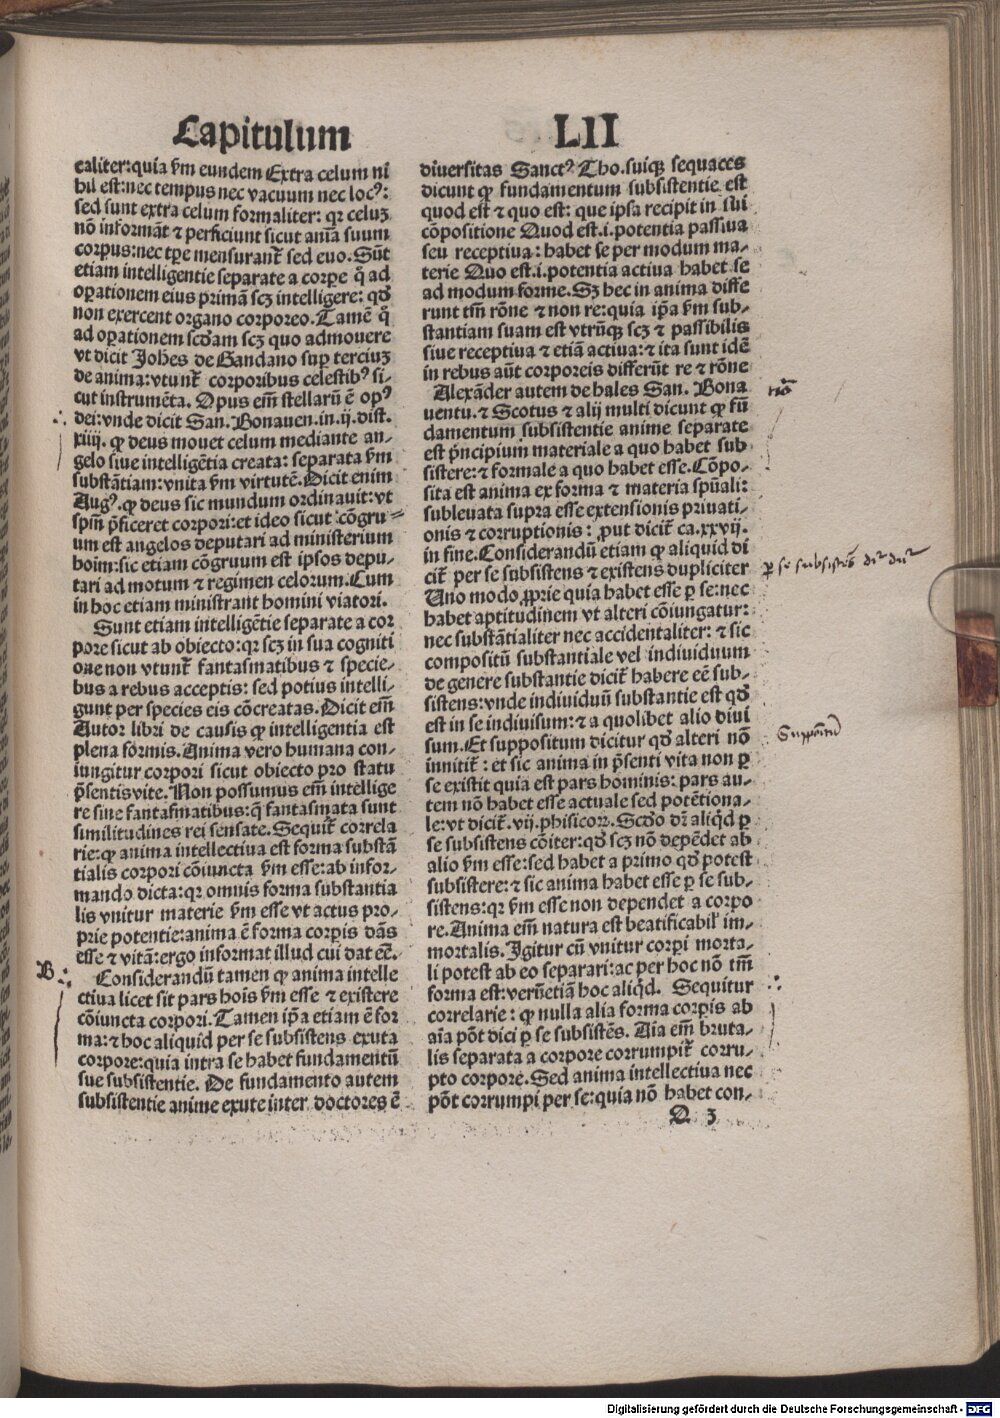 Capitulum LII
caliter:quia ẜm eundem Extra celum ni
hil est:nec tempus nec vacuum nec locꝰ:
sed sunt extra celum formaliter: qꝛ celuꝫ
nō informāt ⁊ perficiunt sicut aīa suum
corpus:nec tꝑe mensurant̄ sed euo. Sūt
etiam intelligentie separate a corꝑe q̊ ad
oꝑationem eius primā scꝫ intelligere: qđ
non exercent organo corporeo. Tamē q̊
ad oꝑationem scđam scꝫ quo admouere
vt dicit Johēs de Gandano suꝑ terciuꝫ
de anima:vtunt̄ corporibus celestibꝰ si⸗
cut instrumēta. Opus em̄ stellarū ē opꝰ
dei:vnde dicit San. Bonauen.in.ij.dist.
xiiij. ꝙ deus mouet celum mediante an⸗
gelo siue intelligētia creata: separata ẜm
substantiam:vnita ẜm virtutē. Dicit enim
Augꝰ. ꝙ deus sic mundum ordinauit:vt
spm̄ p̄ficeret corpori:et ideo sicut cōgru⸗
um est angelos deputari ad ministerium
hoim:sic etiam cōgruum est ipsos depu⸗
tari ad motum ⁊ regimen celorum. Cum
in hoc etiam ministrant homini viatori.
Sunt etiam intelligētie separate a cor
pore sicut ab obiecto:qꝛ scꝫ in sua cogniti
one non vtunt̄ fantasmatibus ⁊ specie⸗
bus a rebus acceptis: sed potius intelli⸗
gunt per species eis cōcreatas. Dicit em̄
Autor libri de causis ꝙ intelligentia est
plena formis. Anima vero humana con⸗
iungitur corpori sicut obiecto pro statu
p̄sentis vite. Non possumus em̄ intellige
re sine fantasmatibus:q̄ fantasmata sunt
similitudines rei sensate. Sequit̄ correla
rie:ꝙ anima intellectiua est forma substā
tialis corpori cōiuncta ẜm esse:ab infor⸗
mando dicta:qꝛ omnis forma substantia
lis vnitur materie ẜm esse vt actus pro⸗
prie potentie:anima ē forma corꝑis dās
esse ⁊ vitā:ergo informat illud cui dat eē.
B
Considerandū tamen ꝙ anima intelle
ctiua licet sit pars hois ẜm esse ⁊ existere
cōiuncta corpori. Tamen ip̄a etiam ē for
ma:⁊ hoc aliquid per se subsistens exuta
corpore:quia intra se habet fundamentū
sue subsistentie. De fundamento autem
subsistentie anime exute inter doctores ē
diuersitas Sanctꝰ Tho.suiqꝫ sequaces
dicunt ꝙ fundamentum subsistentie est
quod est ⁊ quo est: que ipsa recipit in sui
cōpositione Quod est.i.potentia passiua
seu receptiua: habet se per modum ma⸗
terie Quo est.i.potentia actiua habet se
ad modum forme. Sꝫ hec in anima diffe
runt tm̄ rōne ⁊ non re:quia ip̄a ẜm sub⸗
stantiam suam est vtrūqꝫ scꝫ ⁊ passibilis
siue receptiua ⁊ etiā actiua:⁊ ita sunt idē
in rebus aūt corporeis differūt re ⁊ rōne
Alexāder autem de hales San. Bona
uentu.⁊ Scotus ⁊ alij multi dicunt ꝙ fū
damentum subsistentie anime separate
est p̄ncipium materiale a quo habet sub
sistere:⁊ formale a quo habet esse. Cōpo⸗
sita est anima ex forma ⁊ materia spūali:
subleuata supra esse extensionis priuati⸗
onis ⁊ corruptionis: ꝓut dicit̄ ca.xxvij.
in fine. Considerandū etiam ꝙ aliquid di
cit̄ per se subsistens ⁊ existens dupliciter
per se subsistēs dr dur
Uno modo ꝓprie quia habet esse ꝑ se:nec
habet aptitudinem vt alteri cōiungatur:
nec substātialiter nec accidentaliter: ⁊ sic
compositū substantiale vel indiuiduum
de genere substantie dicit̄ habere eē sub⸗
sistens:vnde indiuiduū substantie est qđ
est in se indiuisum:⁊ a quolibet alio diui
sum. Et suppositum dicitur qđ alteri nō
innitit̄: et sic anima in p̄senti vita non ꝑ
se existit quia est pars hominis: pars au⸗
tem nō habet esse actuale sed potētiona⸗
le:vt dicit̄.vij.phisicoꝝ. Scđo dr̄ aliqđ ꝑ
se subsistens cōiter:qđ scꝫ nō depēdet ab
alio ẜm esse:sed habet a primo qđ potest
subsistere:⁊ sic anima habet esse ꝑ se sub⸗
sistens:qꝛ ẜm esse non dependet a corpo
re. Anima em̄ natura est beatificabil' im⸗
mortalis. Igitur cū vnitur corꝑi morta⸗
li potest ab eo separari:ac per hoc nō tm̄
forma est:verūetiā hoc aliqđ. Sequitur
correlarie: ꝙ nulla alia forma corꝑis ab
aīa pōt dici ꝑ se subsistēs. Aīa em̄ bruta⸗
lis separata a corpore corrumpit̄ corru⸗
pto corpore. Sed anima intellectiua nec
pōt corrumpi per se:quia nō habet con⸗
D 3
Digitalisierung gefördert durch die Deutsche Forschungsgemeinschaft - DFG